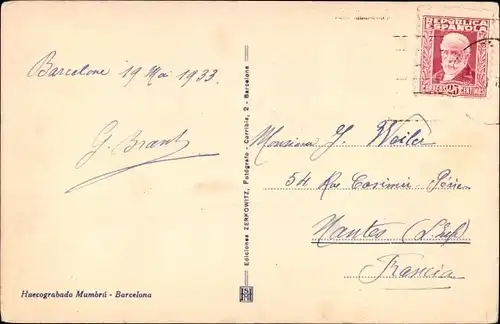 Barcelone 19 Mai 1933.
G. Brant
REPÚBLICA
ESPAÑOLA
CORREOS 25 CENTIMOS
Monsieur J. Weiler
54 Rue Casimir Périer
Nantes
Francia
Ediciones ZERKOWITZ, Fotógrafo - Corribia, 2 - Barcelona
Huecograbado Mumbrú - Barcelona